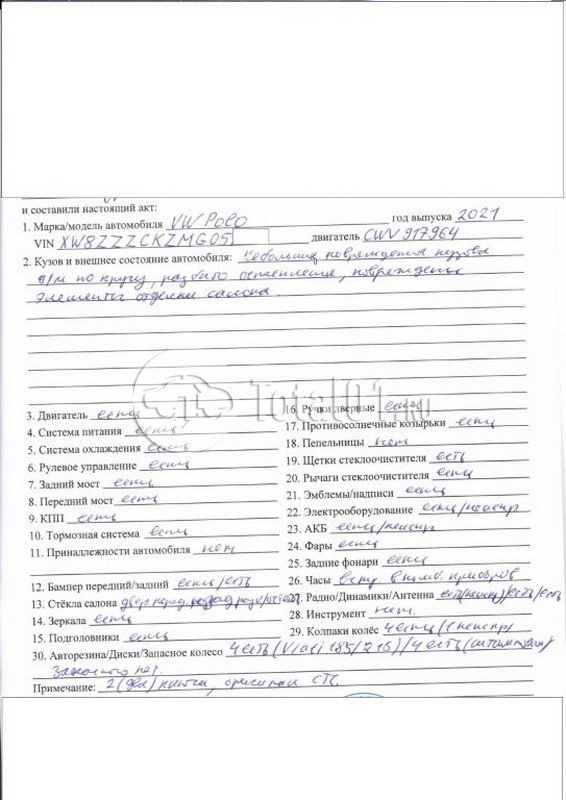 и составили настоящий акт:
1. Марка/модель автомобиля VW Polo год выпуска 2021
VIN XW8ZZZCKZMG05 двигатель CWV 917964
2. Кузов и внешнее состояние автомобиля: Небольшие повреждения кузова
д/м по кругу, разбито остекление, повреждены
элементы отделки салона.
3. Двигатель есть
4. Система питания есть
5. Система охлаждения есть
6. Рулевое управление есть
7. Задний мост есть
8. Передний мост есть
9. КПП есть
10. Тормозная система есть
11. Принадлежности автомобиля нет
12. Бампер передний/задний есть/есть
13. Стёкла салона двер перед
14. Зеркала есть
15. Подголовники есть
16. Ручки дверные есть
17. Противосолнечные козырьки есть
18. Пепельницы нет
19. Щетки стеклоочистителя есть
20. Рычаги стеклоочистителя есть
21. Эмблемы/надписи есть
22. Электрооборудование есть/неиспр
23. АКБ есть/неиспр
24. Фары есть
25. Задние фонари есть
26. Часы встр в комб приборов
27. Радио/Динамики/Антенна есть(неиспр)/есть/есть
28. Инструмент нет.
29. Колпаки колёс 4 есть (1 неиспр)
30. Авторезина/Диски/Запасное колесо 4 есть (Viatti 185/215)/4 есть (штамп)/
Запасного нет.
Примечание: 2 (два) ключа, оригинал СТС.
Total01.ru